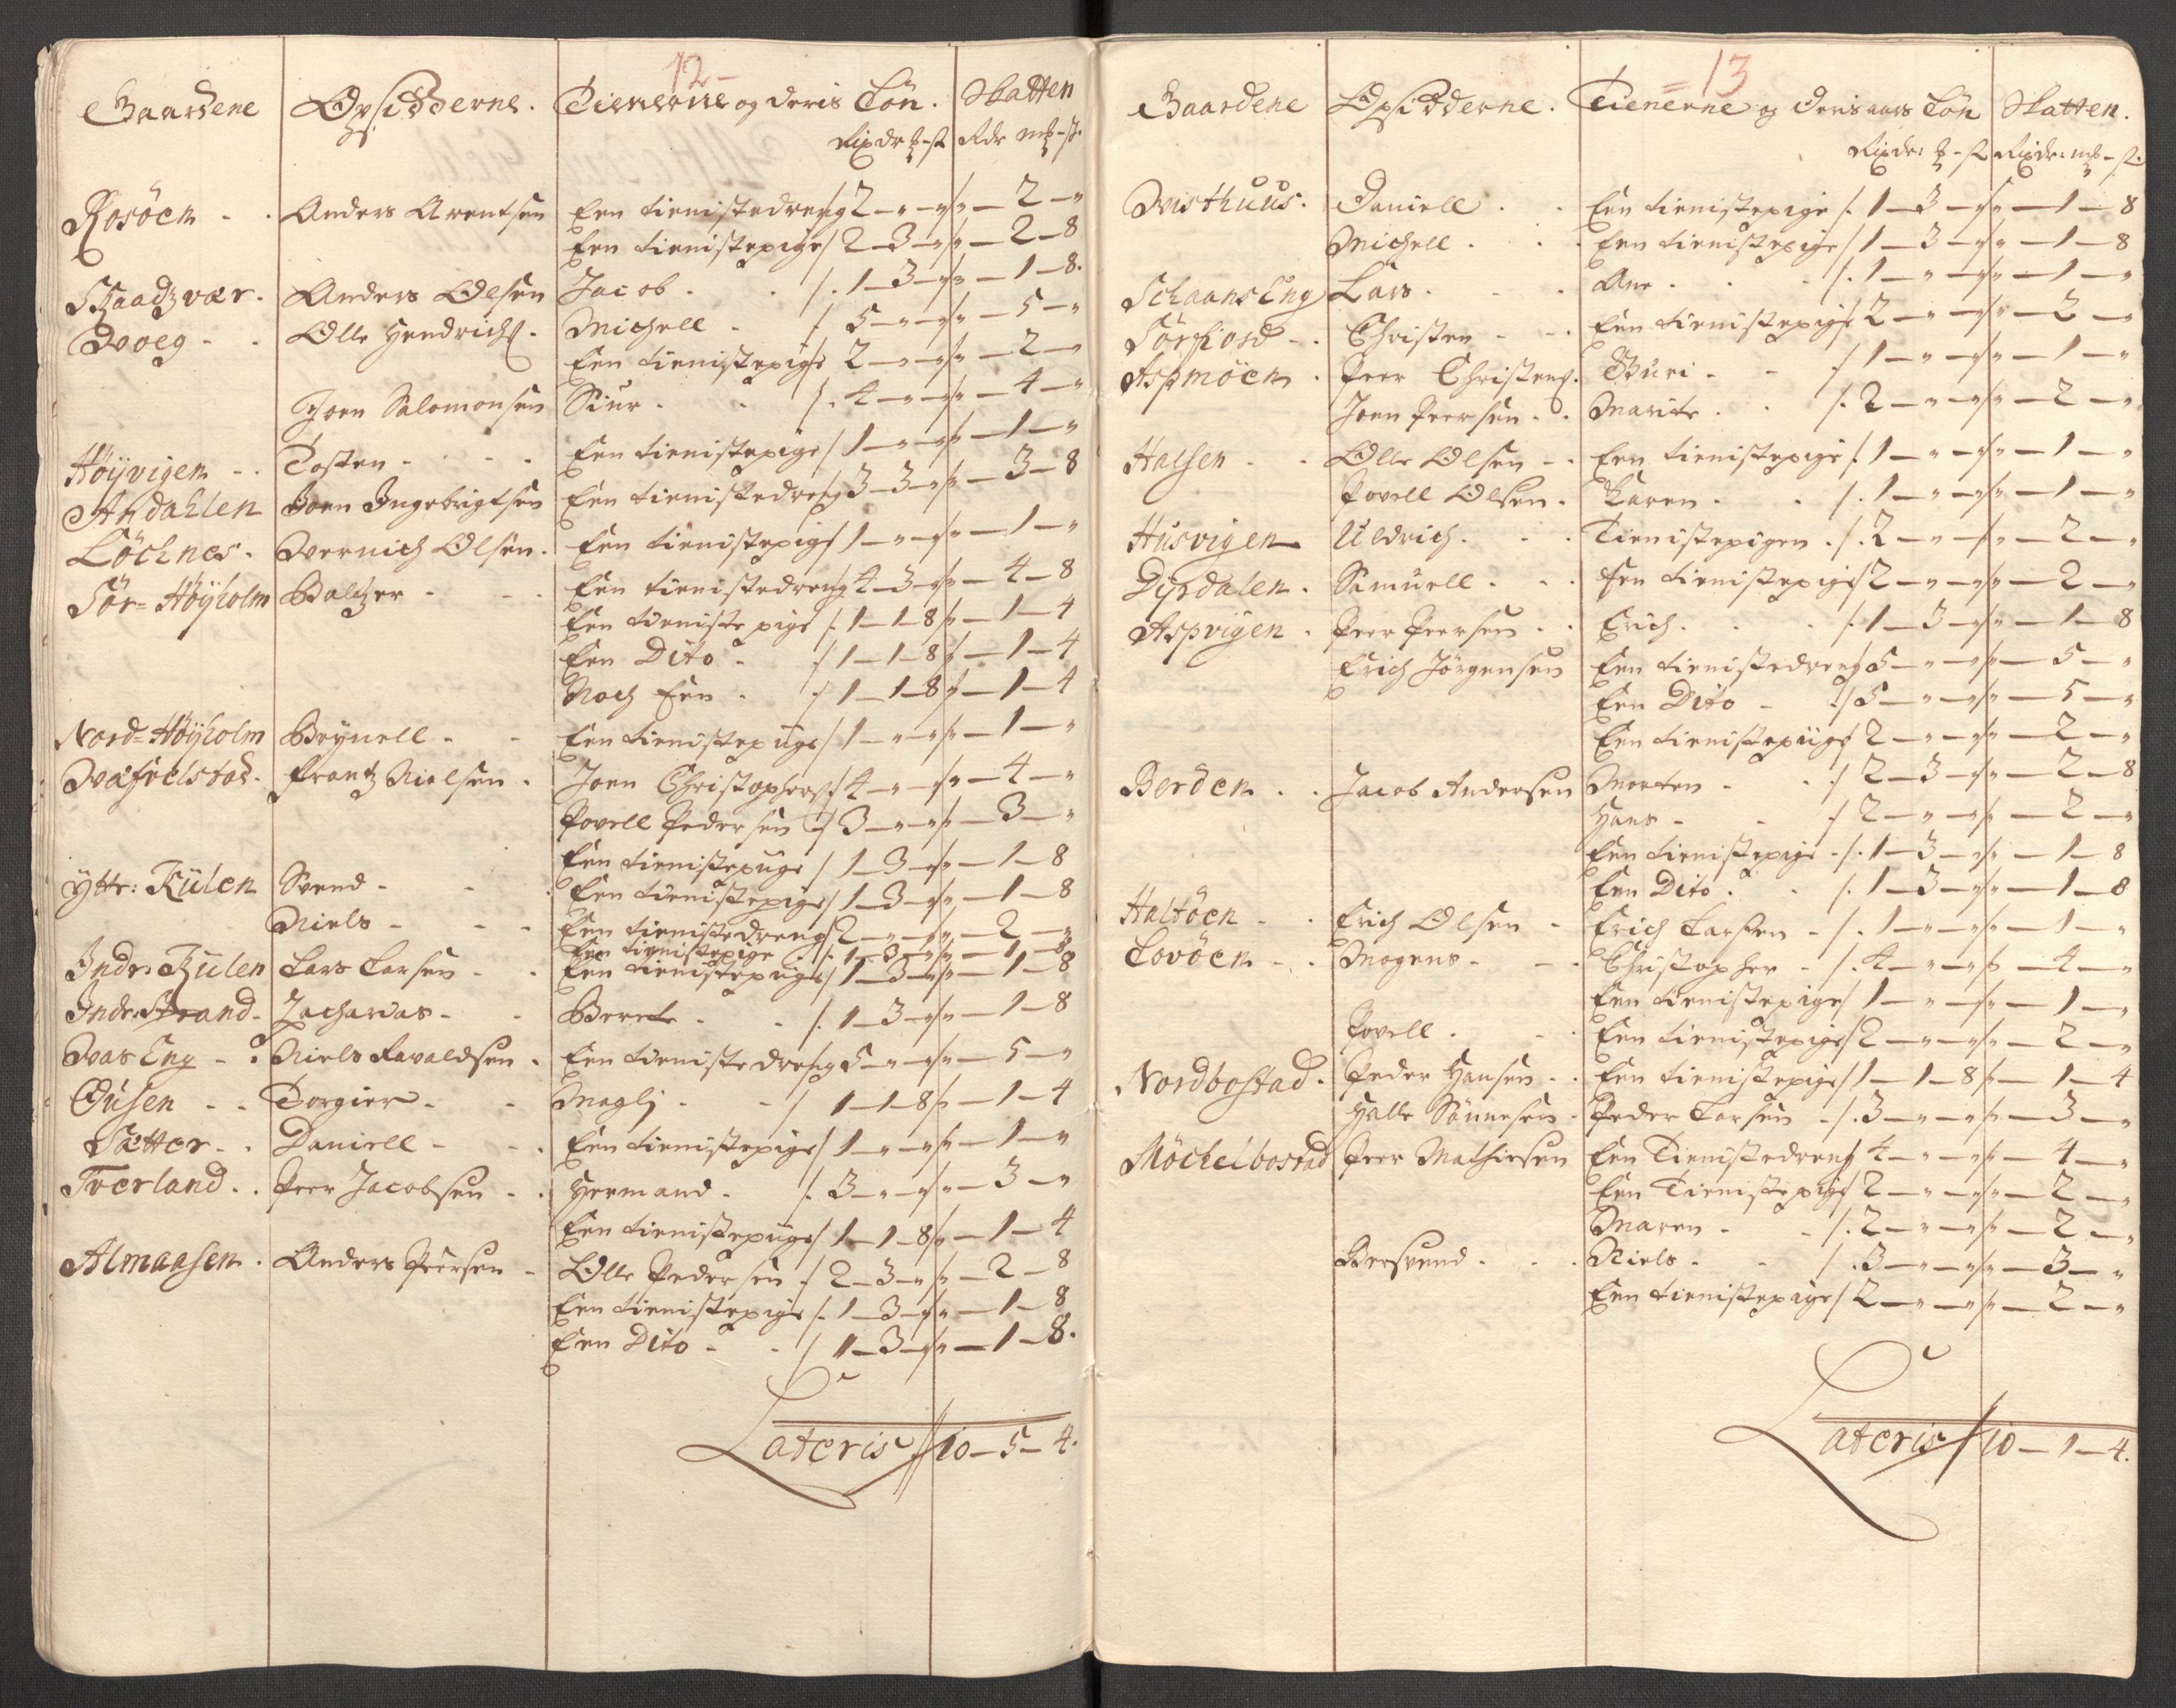 12
Gaardene Opsidderne. Tienerne og deris Lön. Skatten
Rixdr ℔ - ß Rdr m℔ - ß
Rosöen - . Anders Arentsen Een tienistedreng 2 - " - " " - 2 - "
Een tienistepige / 2 - 3 - " " - 2 - 8
Anders Olsen Jacob . . /. 1 - 3 - " " - 1 - 8.
Woeg - . Olle Hendrichs. Michell - / 5 - " - " " - 5 - "
Een tienistepige 2 - " - " " - 2 - "
Joen Salomonsen Siur . . /. 4 - " - " " - 4 - "
Höyvigen - . Tosten - . . Een tienistepige / 1 - " - " " - 1 - "
Andahlen Joen Ingebrigtsen Een tienistedreng 3 - 3 - " " - 3 - 8
Löchnes . Wernich Olsen . Een tienistepige 1 - " - " " - 1 - "
Sör= Höyholm Baltzer - . . Een tienistedreng 4 - 3 - " " - 4 - 8
Een tieniste pige /. 1 - 1 - 8 " - 1 - 4
Een Dito - / 1 - 1 - 8 " - 1 - 4
Noch Een - / 1 - 1 - 8 " - 1 - 4
Nord= Höyholm Brynell - - Een tienistepige / 1 - " - " " - 1 - "
Frantz Nielsen . Joen Christophers. 4 - " - " " - 4 - "
Povell Pedersen / 3 - " - " " - 3 - "
Een tienistepige / 1 - 3 - " " - 1 - 8
Yttr: Külen Svend - - . Een tienistepige / 1 - 3 - " " - 1 - 8
Niels - - - Een tienistedreng 2 - " - " " - 2 - "
Een tienistepige /. 1 - 3 - " " - 1 - 8
Indr: Külen Lars Larsen - . Een tienistepige / 1 - 3 - " " - 1 - 8
Indr: Strand - Zacharias - - Berete - . /. 1 - 3 - " " - 1 - 8
Was Eng - . Niels Ravaldsen . Een tieniste dreng 5 - " - " " - 5 - "
Dusen - . Torgier - - Magli - - / 1 - 1 - 8 " - 1 - 4
Sætter - . Daniell - . . Een tienistepige / 1 - " - " " - 1 - "
Tverland . . Peer Jacobsen - . Hermand - /. 3 - " - " " - 3 - "
Een tienistepige / 1 - 1 - 8 " - 1 - 4
Almaasen . Anders Peersen - Olle Pedersen / 2 - 3 - " " - 2 - 8
Een tienistepige /. 1 - 3 - " " - 1 - 8
Een Dito - - / 1 - 3 - " " - 1 - 8.
Lateris // 10 - 5 - 4.
= 13
Gaardene Opsidderne. Tienerne og Deris aars Lön Skatten.
Rixdr: ℔ - ß Rixdr: m℔ - ß.
Wisthuus . Daniell . . Een tienistepige /. 1 - 3 - " " - 1 - 8
Michell . . . Een tienistepige / 1 - 3 - " " - 1 - 8
Schaans Eng Lars . . . Ane . . . /. 1 - " - " " - 1 - "
Sörfiord - . Christen - - . Een tienistepige 2 - " - " " - 2 - "
Aspmöen . Peer Christens. Guri - - / 1 - " - " " - 1 - "
Joen Peersen . . Marite . . /. 2 - " - " " - 2 - "
Halsen . . Olle Olsen - . Een tienistepige /. 1 - " - " " - 1 - "
Povell Olsen . Karen . . /. 1 - " - " " - 1 - "
Husvigen Uldrich . . . Tienistepigen . /. 2 - " - " " - 2 - "
Dyrdalen . Samuell . . . Een tienistepige 2 - " - " " - 2 - "
Aspvigen . Peer Peersen . . Erich . . . /. 1 - 3 - " " - 1 - 8
Erich Jörgensen Een tienistedreng 5 - " - " " - 5 - "
Een Dito - / 5 - " - " " - 5 - "
Een tienistepige 2 - " - " " - 2 - "
Berden . . Jacob Andersen Morten - . / 2 - 3 - " " - 2 - 8
Hans - - / 2 - " - " " - 2 - "
Een tienistepige - /. 1 - 3 - " " - 1 - 8
Een Dito . . /. 1 - 3 - " " - 1 - 8
Haltöen - . Erich Olsen - Erich Larsen - /. 1 - " - " " - 1 - "
Lovöen - . Mogens - - . Christopher - /. 4 - " - " " - 4 - "
Een tienistepige / 1 - " - " " - 1 - "
Povell . - . Een tienistepige / 2 - " - " " - 2 - "
Nordbostad . Peder Hansen . . Een tienistepige / 1 - 1 - 8 " - 1 - 4
Halle Sönnesen - Peder Larsen - /. 3 - " - " " - 3 - "
Möchelbostad Peer Mathiesen Een Tienistedreng 4 - " - " " - 4 - "
Een Tienistepige 2 - " - " " - 2 - "
Maren - - /. 2 - " - " " - 2 - "
Bersvend . . . Niels - - / . 3 - " - " " - 3 - "
Een tienistepige / 2 - " - " " - 2 - "
Lateris / 10 - 1 - 4.